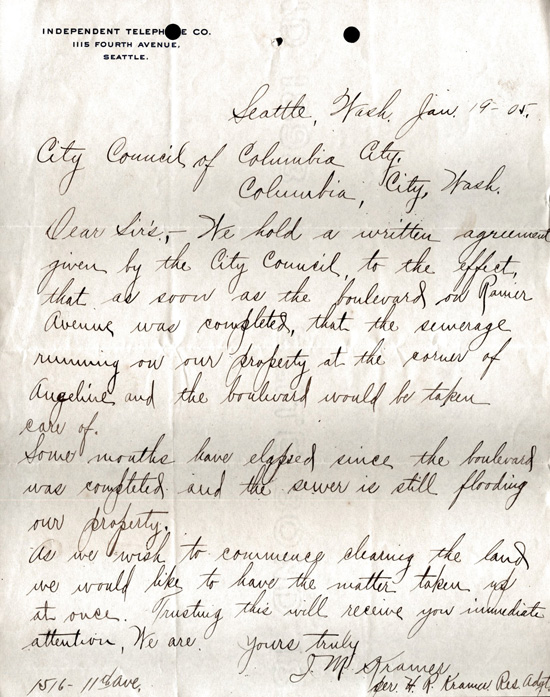 INDEPENDENT TELEPHONE CO.
1115 FOURTH AVENUE,
SEATTLE.
Seattle, Wash. Jan. 19-05.
City Council of Columbia City,
Columbia, City, Wash.
Dear Sir's,- We hold a written agreement
given by the City Council, to the effect,
that as soon as the boulevard on Ranier
Avenue was completed, that the sewerage
running on our property at the corner of
Angeline and the boulevard would be taken
care of.
Some months have elapsed since the boulevard
was completed and the sewer is still flooding
our property.
As we wish to commence clearing the land
we would like to have the matter taken up
at once. Trusting this will receive you immediate
attention, We are. Yours truly
J. M. Kramer
per H. R. Kramer Res. Adgt
1516- 11th ave.